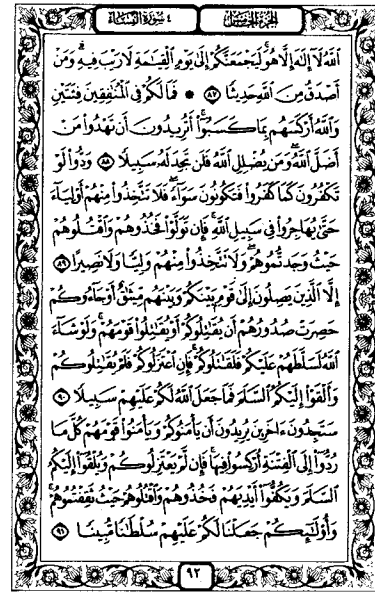 الجزء الخامس
٤ سورة النساء
ٱللَّهُ لَآ إِلَٰهَ إِلَّا هُوَ لَيَجْمَعَنَّكُمْ إِلَىٰ يَوْمِ ٱلْقِيَٰمَةِ لَا رَيْبَ فِيهِ وَمَنْ
أَصْدَقُ مِنَ ٱللَّهِ حَدِيثًا ٨٧ ۞ فَمَا لَكُمْ فِي ٱلْمُنَٰفِقِينَ فِئَتَيْنِ
وَٱللَّهُ أَرْكَسَهُم بِمَا كَسَبُوٓا۟ أَتُرِيدُونَ أَن تَهْدُوا۟ مَنْ
أَضَلَّ ٱللَّهُ وَمَن يُضْلِلِ ٱللَّهُ فَلَن تَجِدَ لَهُۥ سَبِيلًا ٨٨ وَدُّوا۟ لَوْ
تَكْفُرُونَ كَمَا كَفَرُوا۟ فَتَكُونُونَ سَوَآءً فَلَا تَتَّخِذُوا۟ مِنْهُمْ أَوْلِيَآءَ
حَتَّىٰ يُهَاجِرُوا۟ فِي سَبِيلِ ٱللَّهِ فَإِن تَوَلَّوْا۟ فَخُذُوهُمْ وَٱقْتُلُوهُمْ
حَيْثُ وَجَدتُّمُوهُمْ وَلَا تَتَّخِذُوا۟ مِنْهُمْ وَلِيًّا وَلَا نَصِيرًا ٨٩
إِلَّا ٱلَّذِينَ يَصِلُونَ إِلَىٰ قَوْمٍۭ بَيْنَكُمْ وَبَيْنَهُم مِّيثَٰقٌ أَوْ جَآءُوكُمْ
حَصِرَتْ صُدُورُهُمْ أَن يُقَٰتِلُوكُمْ أَوْ يُقَٰتِلُوا۟ قَوْمَهُمْ وَلَوْ شَآءَ
ٱللَّهُ لَسَلَّطَهُمْ عَلَيْكُمْ فَلَقَٰتَلُوكُمْ فَإِنِ ٱعْتَزَلُوكُمْ فَلَمْ يُقَٰتِلُوكُمْ
وَأَلْقَوْا۟ إِلَيْكُمُ ٱلسَّلَمَ فَمَا جَعَلَ ٱللَّهُ لَكُمْ عَلَيْهِمْ سَبِيلًا ٩٠
سَتَجِدُونَ ءَاخَرِينَ يُرِيدُونَ أَن يَأْمَنُوكُمْ وَيَأْمَنُوا۟ قَوْمَهُمْ كُلَّ مَا
رُدُّوٓا۟ إِلَى ٱلْفِتْنَةِ أُرْكِسُوا۟ فِيهَا فَإِن لَّمْ يَعْتَزِلُوكُمْ وَيُلْقُوٓا۟ إِلَيْكُمُ
ٱلسَّلَمَ وَيَكُفُّوٓا۟ أَيْدِيَهُمْ فَخُذُوهُمْ وَٱقْتُلُوهُمْ حَيْثُ ثَقِفْتُمُوهُمْ
وَأُو۟لَٰٓئِكُمْ جَعَلْنَا لَكُمْ عَلَيْهِمْ سُلْطَٰنًا مُّبِينًا ٩١
٩٢